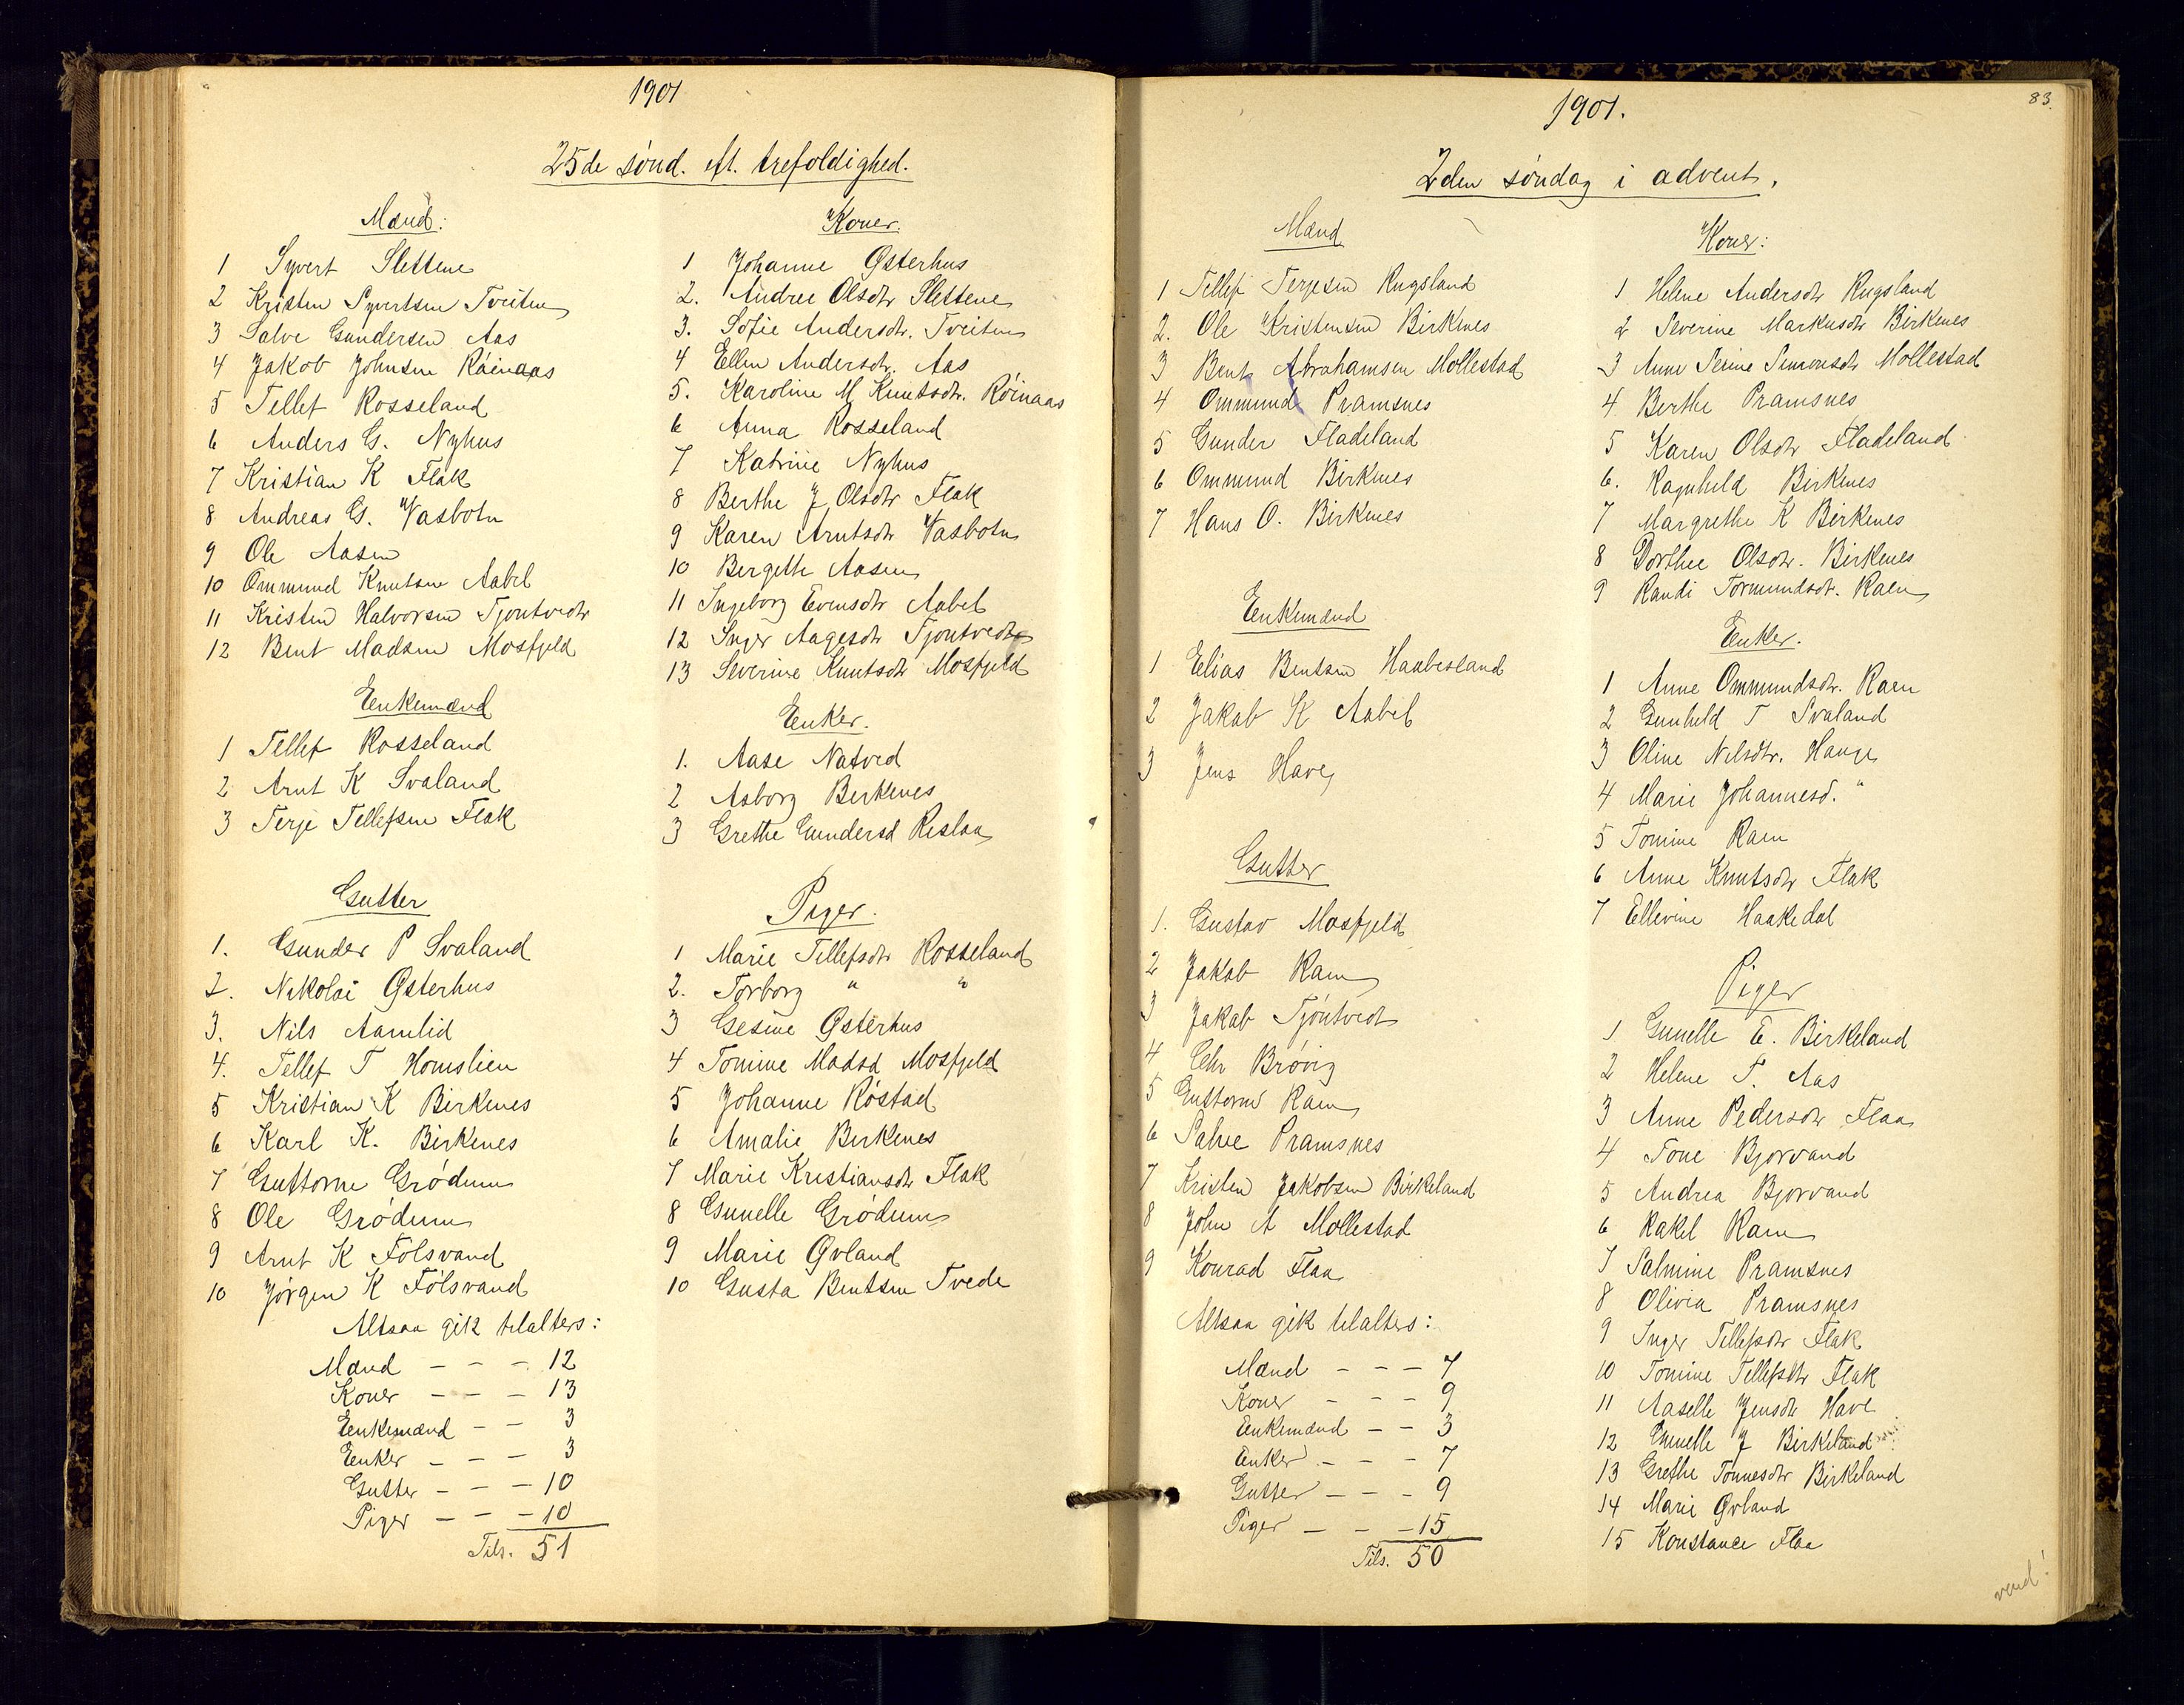 1901
25de sönd. eft. trefoldighed.
Mænd:
1 Syvert Slettene
2 Kristen Syvertsen Tveiten
3 Salve Gundersen Aas
4 Jakob Johnsen Röinaas
5 Tellef Rosseland
6 Anders G. Nyhus
7 Kristian K Flak
8 Andreas G. Vasbotn
9 Ole Aasen
10 Ommund Knutsen Aabel
11 Kristen Halvorsen Tjöntvedt
12 Bent Madsen Mosfjeld
Enkemænd
1 Tellef Rosseland
2 Arnt K Svaland
3 Terje Tellefsen Flak
Gutter
1. Gunder P Svaland
2. Nikolai Østerhus
3. Nils Aamlid
4. Tellef T Homslien
5 Kristian K Birkenes
6 Karl K. Birkenes
7 Guttorm Grödum
8 Ole Grödum
9 Arnt K Fölsvand
10 Jörgen K Fölsvand
Altsaa gik tilalters:
Mænd – – – 12
Koner – – – 13
Enkemænd – – 3
Enker – – – 3
Gutter – – – 10
Piger – – – 10
Tils. 51
Koner.
1 Johanne Østerhus
2. Andrea Olsdtr Slettene
3. Sofie Andersdtr. Tveiten
4 Ellen Andersdtr. Aas
5. Karoline M Knutsdtr. Röinaas
6 Anna Rosseland
7 Katrine Nyhus
8 Berthe J Olsdtr Flak
9 Karen Arntsdtr Vasbotn
10 Bergette Aasen
11 Ingeborg Evensdtr Aabel
12 Inger Aagesdtr Tjöntvedt
13 Severine Knutsdtr Mosfjeld
Enker.
1. Aase Natved
2 Asborg Birkenes
3 Grethe Gundersd Rislaa
Piger.
1 Marie Tellefsdtr Rosseland
2. Torborg " "
3 Gesine Østerhus
4 Tomine Madsd Mosfjeld
5 Johanne Röstad
6 Amalie Birkenes
7 Marie Kristiansdtr Flak
8 Gunelle Grödum
9 Marie Øvland
10 Gusta Bentsen Tvede
83.
1901.
2den söndag i advent.
Mænd
1 Tellef Terjesen Rugsland
2. Ole Kristensen Birkenes
3 Bent Abrahamsen Mollestad
4 Ommund Pramsnes
5 Gunder Fladeland
6 Ommund Birkenes
7 Hans O. Birkenes
Enkemænd
1 Elias Bentsen Haabesland
2 Jakob K Aabel
3 Jens Have
Gutter
1. Gustav Mosfjeld
2 Jakob Raen
3 Jakob Tjöntvedt
4 Chr Brövig
5 Guttorm Raen
6 Salve Pramsnes
7 Kristen Jakobsen Birkeland
8 John A Mollestad
9 Konrad Flaa
Altsaa gik tilalters:
Mænd – – – 7
Koner – – – 9
Enkemænd – – 3
Enker – – – 7
Gutter – – – 9
Piger – – – 15
Tils. 50
Koner:
1 Helene Andersdtr Rugsland
2 Severine Markusdtr Birkenes
3 Anne Serine Simonsdtr Mollestad
4 Berthe Pramsnes
5 Karen Olsdtr Fladeland
6. Ragnhild Birkenes
7 Margrethe K Birkenes
8 Dorthea Olsdtr. Birkenes
9 Randi Tormundsdt. Raen
Enker.
1 Anne Ommundsdtr. Raen
2 Gunhild T Svaland
3 Oline Nilsdtr. Hauge
4 Marie Johannesd. "
5 Tomine Raen
6 Anne Knutsdtr Flak
7 Ellevine Haakedal
Piger
1 Gunelle E. Birkeland
2 Helene T. Aas
3 Anne Pedersdtr Flaa
4 Tone Bjorvand
5 Andrea Bjorvand
6 Rakel Raen
7 Salmine Pramsnes
8 Olivia Pramsnes
9 Inger Tellefsdtr Flak
10 Tomine Tellefsdtr Flak
11 Aaselle Jensdtr Have
12 Gunelle J Birkeland
13 Grethe Tonnesdtr Birkeland
14 Marie Øvland
15 Konstance Flaa
vend!